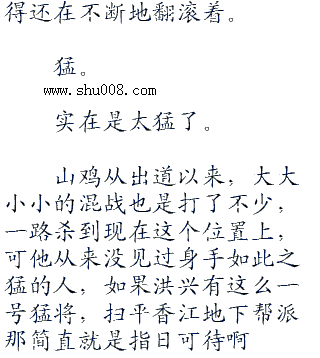 得还在不断地翻滚着。
猛。
www.shu008.com
实在是太猛了。
山鸡从出道以来，大大
小小的混战也是打了不少，
一路杀到现在这个位置上，
可他从来没见过身手如此之
猛的人，如果洪兴有这么一
号猛将，扫平香江地下帮派
那简直就是指日可待啊